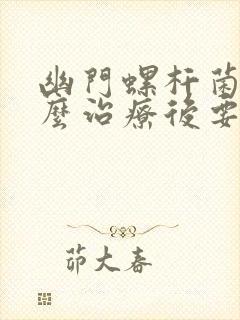 幽門螺杆菌
麼治療後要
茆大春